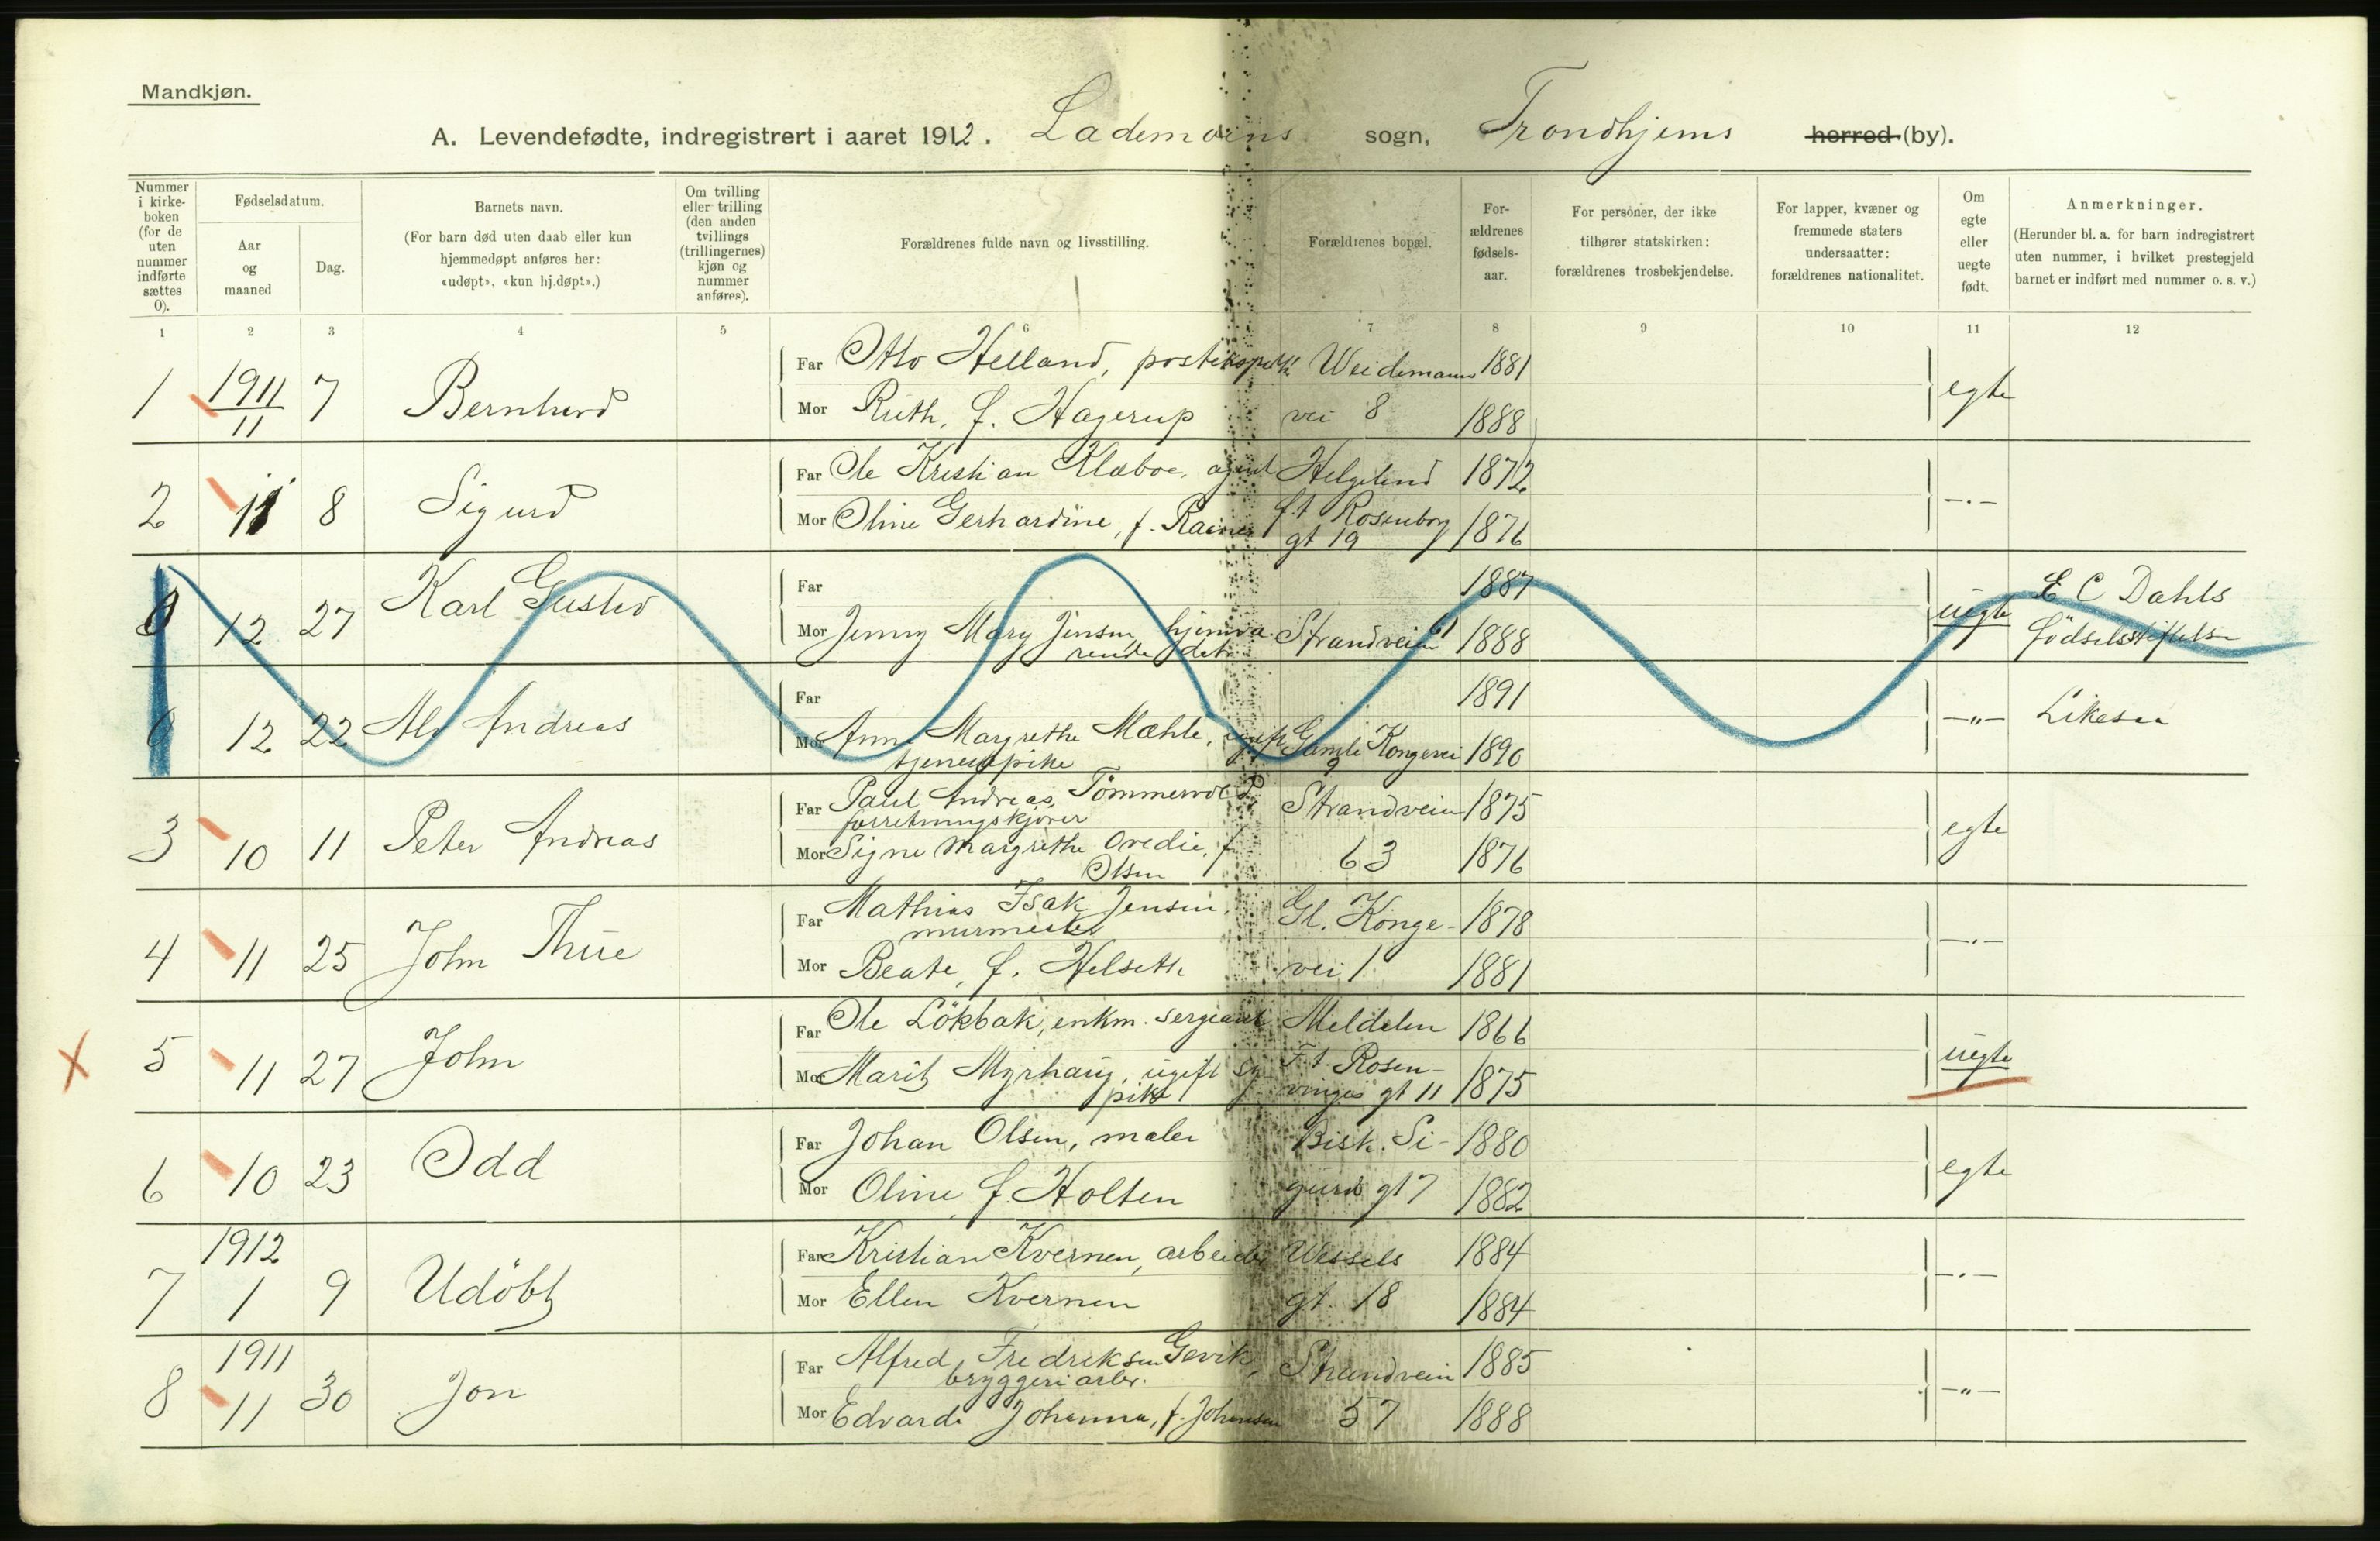 Mandkjøn.
A. Levendefødte, indregistrert i aaret 1912. Lademoens sogn, Trondhjems herred (by).
Nummer i kirke-boken (for de uten nummer indførte sættes 0).
Fødselsdatum.
Aar og maaned
Dag.
Barnets navn.
(For barn død uten daab eller kun hjemmedøpt anføres her: «udøpt», «kun hj.døpt».)
Om tvilling eller trilling (den anden tvillings (trillingernes) kjøn og nummer anføres).
Forældrenes fulde navn og livsstilling.
Forældrenes bopæl.
For-ældrenes fødsels-aar.
For personer, der ikke tilhører statskirken: forældrenes trosbekjendelse.
For lapper, kvæner og fremmede staters undersaatter: forældrenes nationalitet.
Om egte eller uegte født.
Anmerkninger.
(Herunder bl. a. for barn indregistrert uten nummer, i hvilket prestegjeld barnet er indført med nummer o. s. v.)
1 2 3 4 5 6 7 8 9 10 11 12
1 1911 11 7 Bernhard
Far Otto Helland, postekspedt Weidemanns 1881 egte
Mor Ruth, f. Hagerup vei 8 1888
2 11 8 Sigurd
Far Ole Kristian Klæboe, agent Helgeland 1872 -„-
Mor Oline Gerhardine, f. f.t Rosenborg gt 19 1876
0 12 27 Karl Gustav
Far 1887 uegte E C Dahls
Mor Jenny Mary Jensen, hjemværende datr Strandveien 61 1888 födselsstiftelse
0 12 22 Alv Andreas
Far 1891 -„- Likesaa
Mor Anna Margrethe Mæhle, ugift tjenestepike Gamle Kongevei 9 1890
3 10 11 Peter Andreas
Far Paul Andreas Tömmervold forretningskjörer Strandveien 1875 egte
Mor Signe Margrethe Ovedie, f. Olsen 63 1876
4 11 25 John Thue
Far Mathias Isak Jensen, murmester Gl. Konge- 1878 -„-
Mor Beate, f. Helseth vei 1 1881
X 5 11 27 John
Far Ole Lökbak, enkm. sergeant Meldalen 1866 uegte
Mor Marit Myrhaug, ugift sypike F.t. Rosen-vinges gt 11 1875
6 10 23 Odd
Far Johan Olsen, maler Bisk. Si- 1880 egte
Mor Oline, f. Holten gurds gt 7 1882
7 1912 1 9 Udöbt
Far Kristian Kvernen, arbeider Wessels 1884 -„-
Mor Ellen Kvernen gt. 18 1884
8 1911 11 30 Jon
Far Alfred Fredriksen Gevik, bryggeriarbr. Strandveien 1885 -„-
Mor Edvarda Johanna, f. Johansen 57 1888